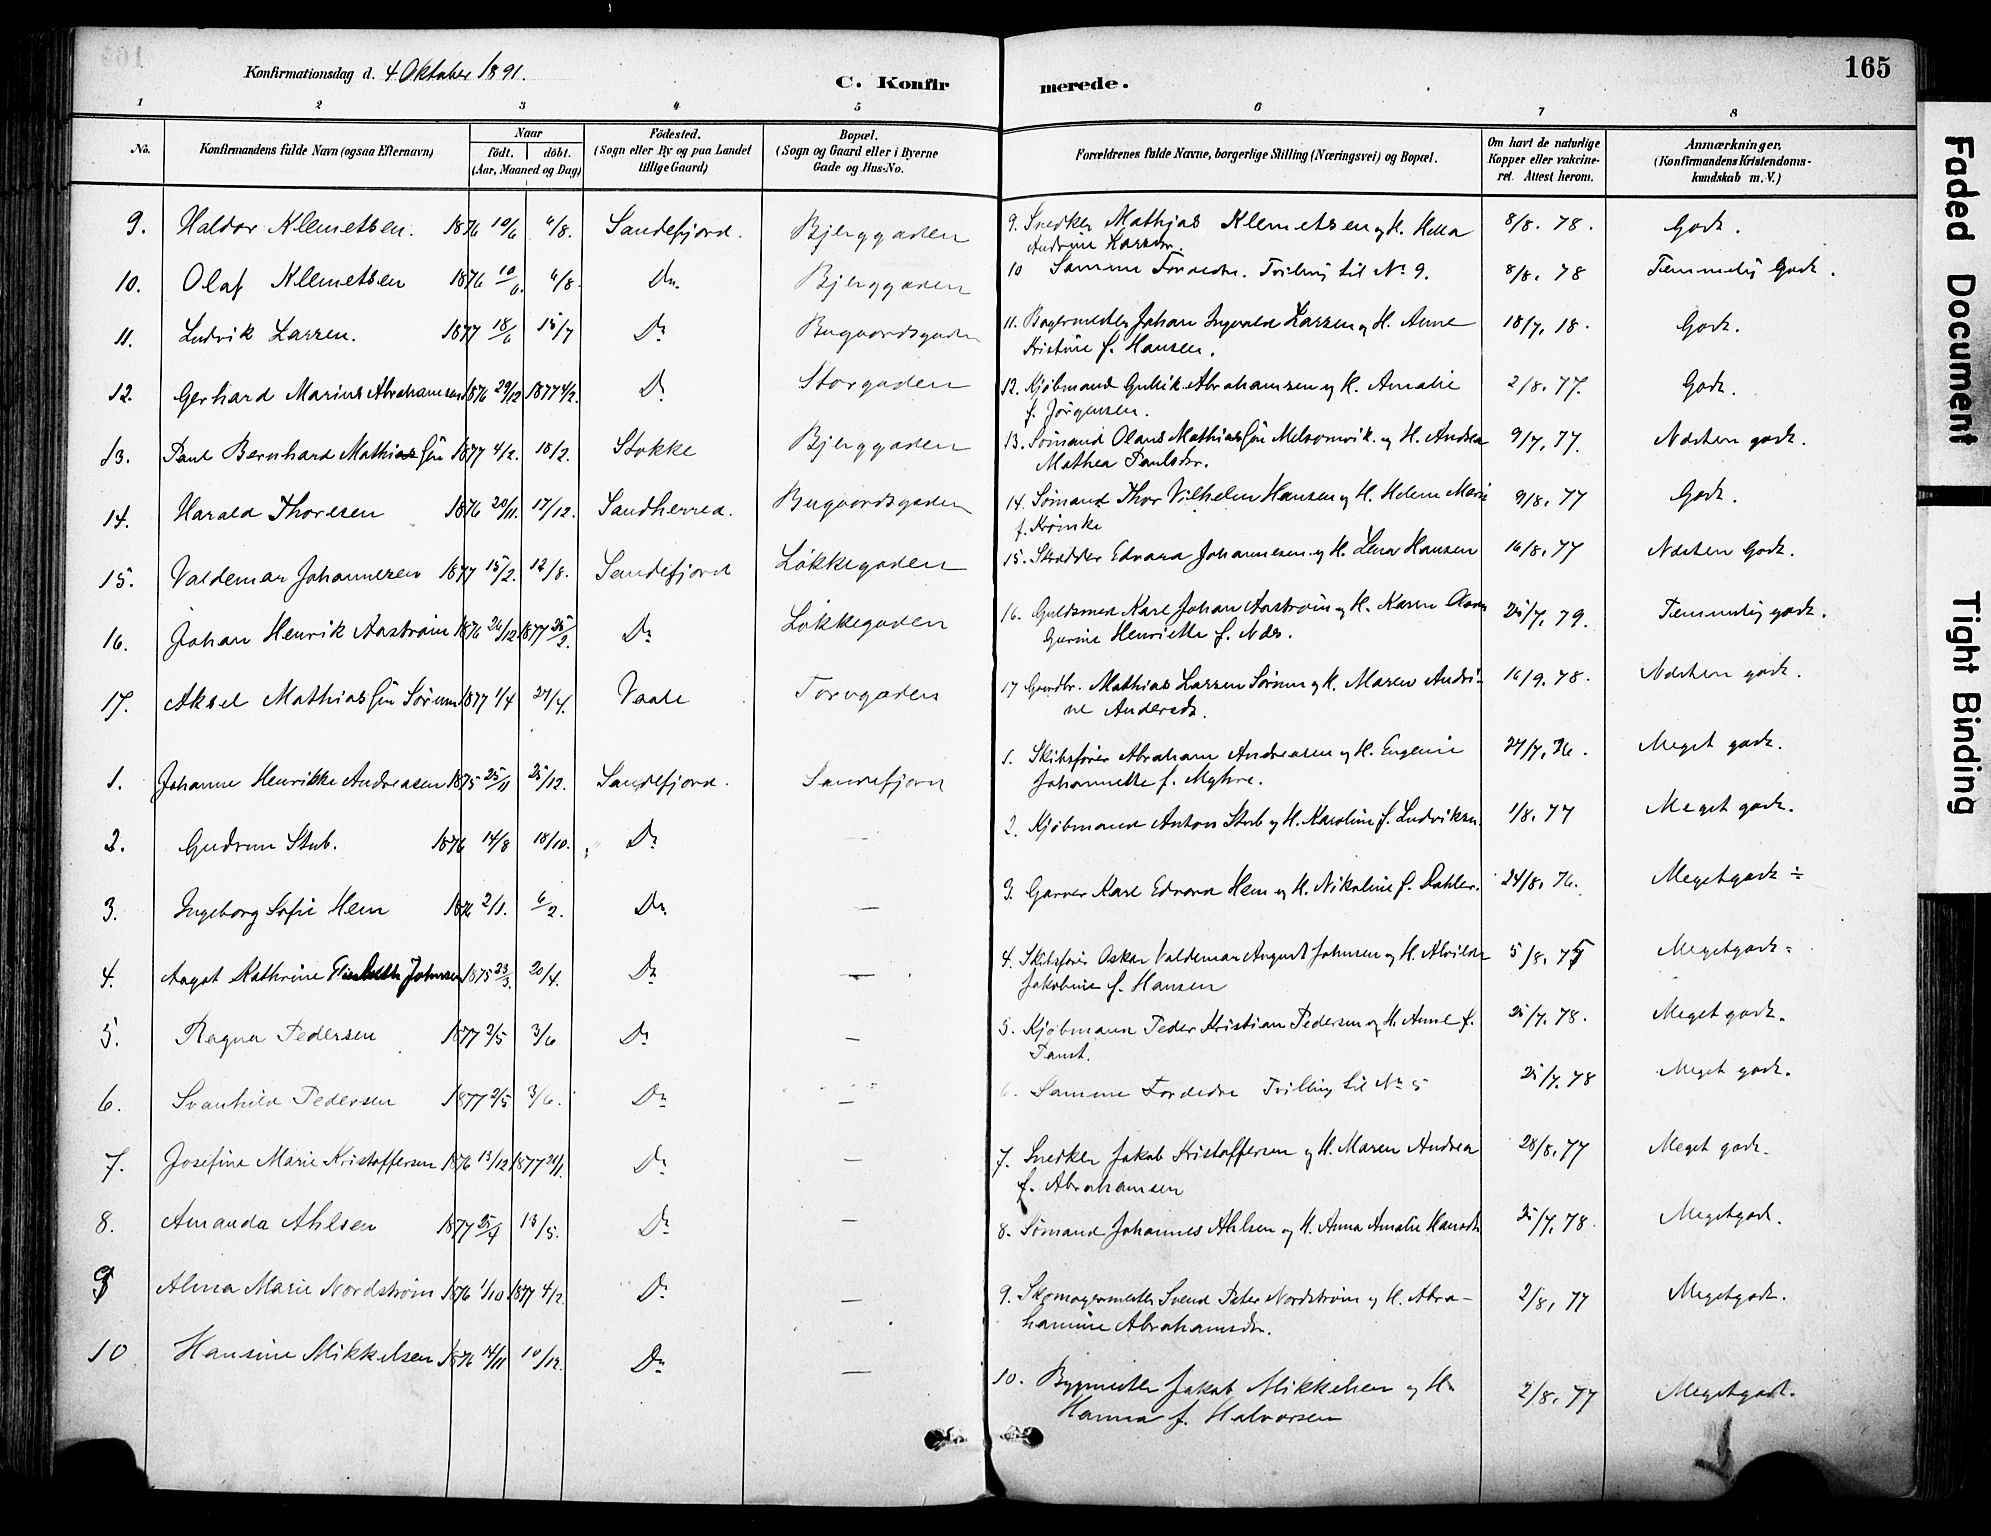 Konfirmationsdag d. 4 Oktober 1891.
C. Konfir
merede.
165
1 2 3 4 5 6 7 8
No.
Konfirmandens fulde Navn (ogsaa Efternavn)
Naar
födt. döbt.
(Aar, Maaned og Dag)
Födested.
(Sogn eller By og paa Landet
tillige Gaard)
Bopæl.
(Sogn og Gaard eller i Byerne
Gade og Hus-No.
Forældrenes fulde Navne, borgerlige Stilling (Næringsvei) og Bopæl.
Om havt de naturlige
Kopper eller vakcine-
ret. Attest herom.
Anmærkninger.
(Konfirmandens Kristendoms-
kundskab m. V.)
9. Haldor Klemetsen. 1876 10/6 6/8. Sandefjord. Bjerggaden 9. Snedker Mathias Klemetsen og H. Hella 8/8. 78. Godt.
Andrine Larsdr.
10. Olaf Klemetsen 1876 10/6. 6/8. Do. Bjerggaden 10 Samme Forældre. Tvilling til No 9. 8/8. 78 Temmelig Godt.
11. Ludvik Larsen. 1877 18/6 15/7 Do Bugaardsgaden 11. Bagermester Johan Ingvald Larsen og H. Anne 18/7. 18. Godt.
Kristine f. Hansen.
12. Gerhard Marius Abrahamsen 1876 29/12 1877 4/2. Do Storgaden 12. Kjøbmand Gulik Abrahamsen og H. Amalie 2/8. 77. Godt.
f. Jörgensen.
13. Paul Bernhard Mathiassön 1877 4/2. 18/2. Stokke Bjerggaden 13. Sømand Olaus Mathiassön Melsomvik og H. Andrea 9/7. 77. Næsten godt.
Mathea Paulsdr.
14. Harald Thoresen 1876 20/11. 17/12. Sandherred. Bugaardsgaden 14. Sømand Thor Vilhelm Hansen og H. Helene Marie 9/8. 77 Godt.
f. Krömke
15. Valdemar Johannesen 1877 15/2. 12/8. Sandefjord Løkkegaden 15. Skrædder Edvard Johannesen og H. Lena Hansen 16/8. 77 Næsten Godt.
16. Johan Henrik Aaström 1876 26/12 1877 25/2. Do Løkkegaden 16. Guldsmed Karl Johan Aaström og H. Karen 25/7. 79. Temmelig godt.
Gurine Henriette f. Næs.
17. Aksel Mathiassön Sörum 1877 1/4 27/4. Vaale Torvgaden 17 Gaardbr. Mathias Larsen Sörum og H. Maren Andri- 16/9. 78. Næsten godt.
ne Andersdr.
1. Johanne Henrikke Andreasen 1875 25/11 25/12. Sandefjord. Sandefjord 1. Skibsfører Abraham Andreasen og H. Eugenie 27/7. 76. Meget godt.
Johannette f. Myhre.
2. Gudrun Stub. 1876 14/8 18/10. Do 2. Kjøbmand Anton Stub og H. Karoline f. Ludviksen. 1/8. 77 Meget godt.
3. Ingeborg Sofie Hem 1876 2/1. 6/2. Do. — 3. Garver Karl Edvard Hem og H. Nikoline f. Dahler. 24/8. 76. Megetgodt ÷
4. Aagot Kathrine Elisabeth Johnsen 1875 23/3. 20/4. Do — 4. Skibsfører Oskar Valdemar August Johnsen og H. Alvilde 5/8. 75 Megetgodt.
Jakobine f. Hansen
5. Ragna Pedersen 1877 2/5 3/6 Do — 5. Kjøbmann Peder Kristian Pedersen og H. Anne f. 25/7. 78. Meget godt.
Faust.
6. Svanhild Pedersen 1877 2/5 3/6. Do — 6. Samme Forældre Tvilling til No 5 25/7. 78 Meget godt.
7. Josefine Marie Kristoffersen 1876 13/12 1877 21/1. Do — 7. Snedker Jakob Kristoffersen og H. Maren Andrea 28/8. 77 Meget godt.
f. Abrahamsen
8. Amanda Ahlsen 1877 25/4 13/5. Do — 8. Sömand Johannes Ahlsen og H. Anna Amalie Hansdr 25/7. 78. Megetgodt.
9 Alma Marie Nordström 1876 1/10 1877 4/2. Do — 9. Skomagermester Svend Peter Nordström og H. Abra- 2/8. 77 Megetgodt.
hamine Abrahamsdr.
10 Hansine Mikkelsen 1876 14/11 10/12. Do — 10. Bygmester Jakob Mikkelsen og H. 2/8. 77 Megetgodt.
Hanna f. Halvorsen
Faded Document
Tight Binding